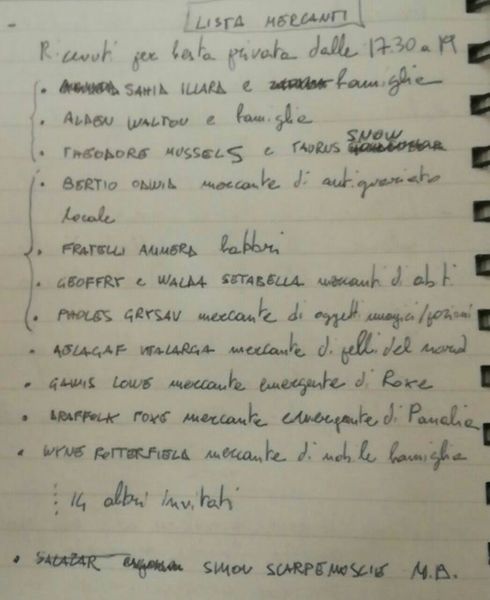 LISTA MERCANTI
Ricevuti per festa privata dalle 17.30 a 19
• SAHID ILLARD e famiglie
• ALDEN WALTON e famiglie
• THEODORE MUSSELS e TAURUS SNOW
• BERTIO mercante di antiquariato
locale
• FRATELLI fabbri
• GEOFFRY e WALDA SETABELLA mercanti di abiti
• PHOLES GRYSAV mercante di oggetti magici/pozioni
• VITALARGA mercante di pelli del nord
• LOWE mercante emergente di
• mercante emergente di
• WYNE POTTERFIELD mercante di nobile famiglia
14 altri invitati
• SALAZAR SIMON